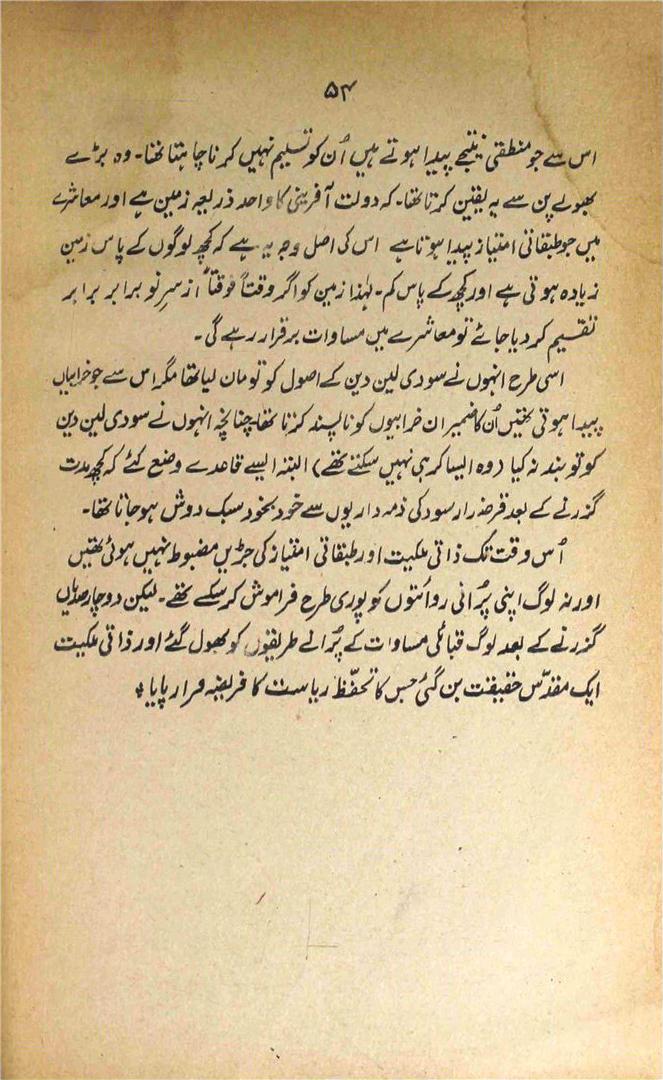 ۵۴
اس سے جو منطقی نیتجے پیدا ہوتے ہیں اُن کو تسلیم نہیں کرنا چاہتا تھا۔ وہ بڑے
بھولے پن سے یہ یقین کرتا تھا۔ کہ دولت آفرینی کا واحد ذریعہ زمین ہے اور معاشرے
میں جو طبقاتی امتیاز پیدا ہوتا ہے اس کی اصل وجہ یہ ہے کہ کچھ لوگوں کے پاس زمین
زیادہ ہوتی ہے اور کچھ کے پاس کم۔ لہٰذا زمین کو اگر وقتاً فوقتاً از سرِ نو برابر برابر
تقسیم کر دیا جائے تو معاشرے میں مساوات برقرار رہے گی۔
اسی طرح انہوں نے سودی لین دین کے اصول کو تو مان لیا تھا مگر اس سے جو خرابیاں
پیدا ہوتی تھیں اُن کا ضمیر ان خرابیوں کو ناپسند کرتا تھا۔ چنانچہ انہوں نے سودی لین دین
کو تو بند نہ کیا (وہ ایسا کر ہی نہیں سکتے تھے) البتہ ایسے قاعدے وضع کئے کہ کچھ مدت
گزرنے کے بعد قرضدار سود کی ذمہ داریوں سے خود بخود سبک دوش ہو جاتا تھا۔
اُس وقت تک ذاتی ملکیت اور طبقاتی امتیاز کی جڑیں مضبوط نہیں ہوئی تھیں
اور نہ لوگ اپنی پُرانی روائتوں کو پوری طرح فراموش کر سکے تھے۔ لیکن دو چار صدیاں
گزرنے کے بعد لوگ قبائلی مساوات کے پُرانے طریقوں کو بھول گئے اور ذاتی ملکیت
ایک مقدّس حقیقت بن گئی جس کا تحفّظ ریاست کا فریضہ قرار پایا ÷